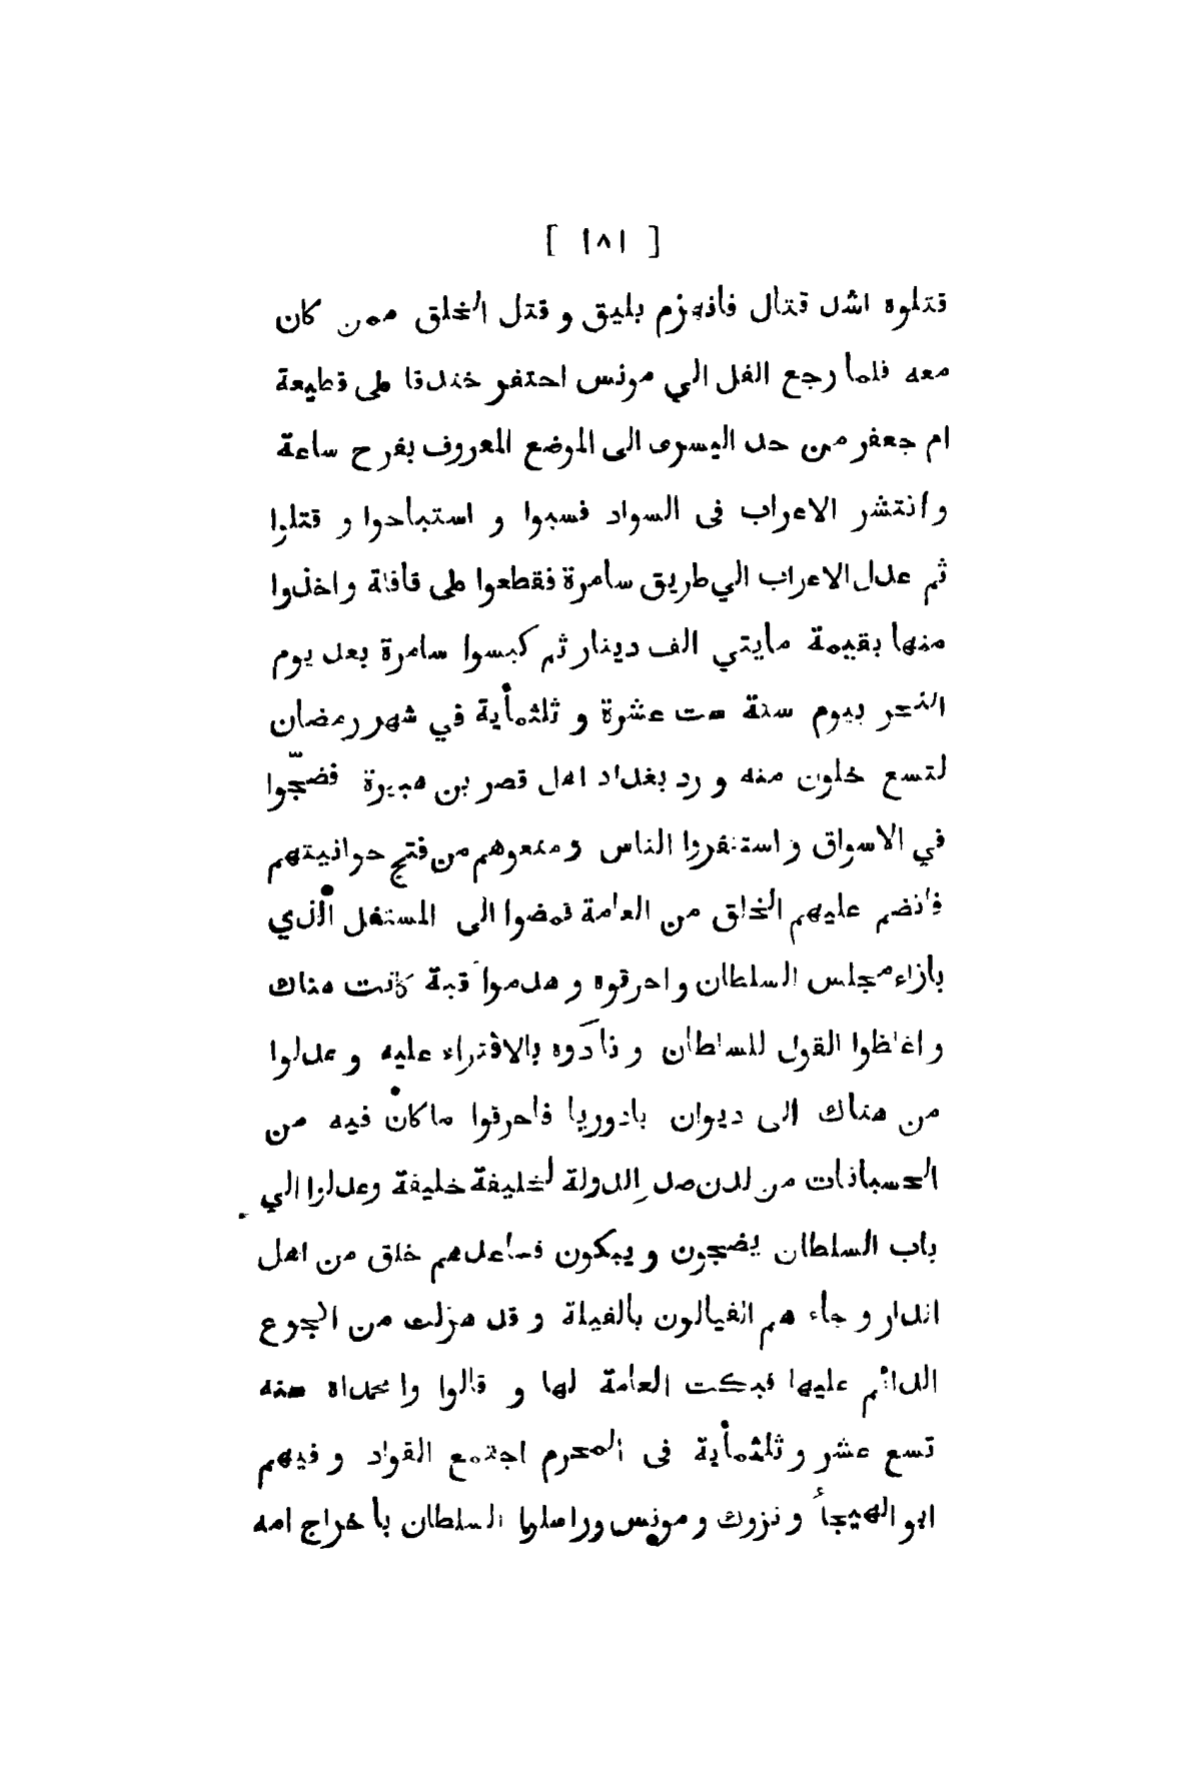 [ ١٨١ ]
قتلوه اشد قتال فانهزم بليق و قتل الخلق ممن كان
معه فلما رجع الفل الي مونس احتفر خندقا على قطيعة
ام جعفر من حد اليسرى الى الموضع المعروف بفرح ساعة
وانتشر الاعراب فى السواد فسبوا و استباحوا و قتلوا
ثم عدل الاعراب الي طريق سامرة فقطعوا على قافلة واخذوا
منها بقيمة مايتي الف دينار ثم كبسوا سامرة بعد يوم
النحر بيوم سنة ست عشرة و ثلثمأية في شهر رمضان
لتسع خلون منه و رد بغداد اهل قصر بن هبيرة فضجّوا
في الاسواق و استنفروا الناس و منعوهم من فتح حوانيتهم
فانضم عليهم الخلق من العامة فمضوا الى المستغل الذي
بازاء مجلس السلطان واحرقوه و هدموا قبة كانت هناك
و اغلظوا القول للسلطان و نادوه بالافتراء عليه و عدلوا
من هناك الى ديوان بادوريا فاحرقوا ماكان فيه من
الحسبانات من لدن صدر الدولة لخليفة خليفة وعدلوا الي
باب السلطان يضجون و يبكون فساعدهم خلق من اهل
الدار و جاء هم الفيالون بالفيلة و قد هزلت من الجوع
الدائم عليها فبكت العامة لها و قالوا وا محمداه سنه
تسع عشر و ثلثمأية فى المحرم اجتمع القواد و فيهم
ابو الهيجأ و نزوك و مونس وراسلوا السلطان بأ خراج امه